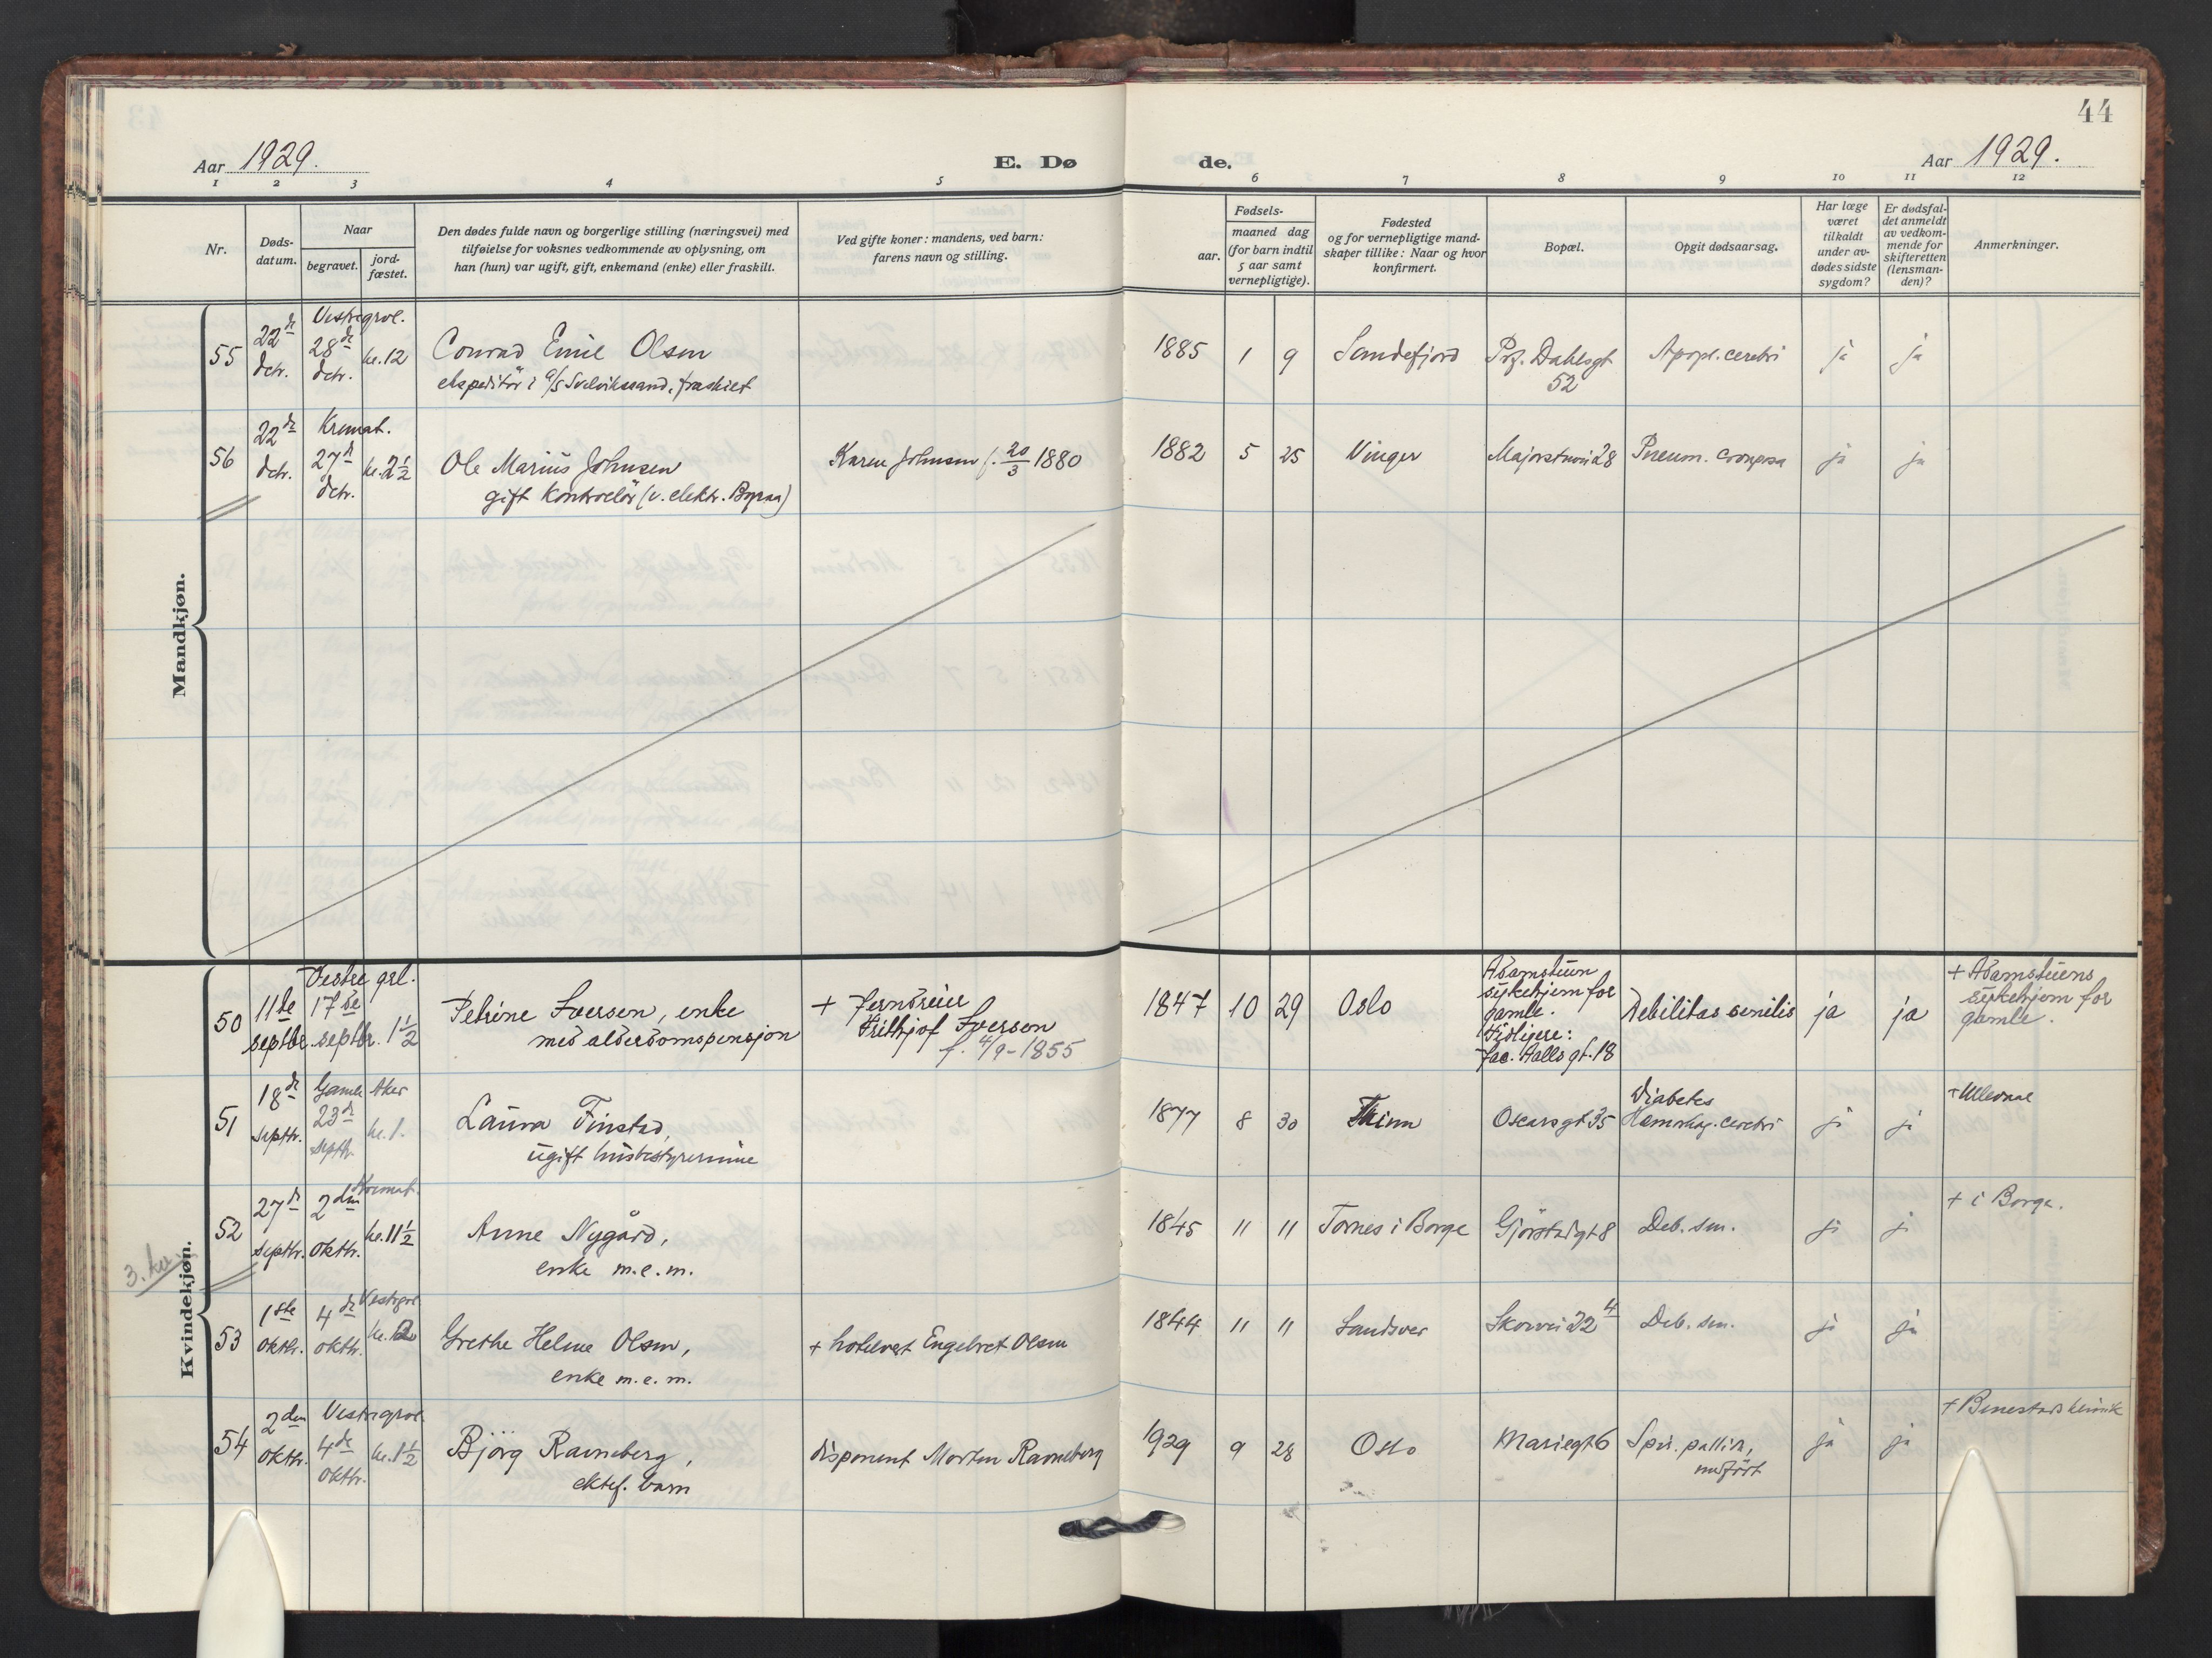 44
Aar 1929.
E. Dø
de.
Aar 1929.
1 2 3 4 5 6 7 8 9 10 11 12
Nr.
Døds-
datum.
Naar
begravet.
jord-
fæstet.
Den dødes fulde navn og borgerlige stilling (næringsvei) med
tilføielse for voksnes vedkommende av oplysning, om
han (hun) var ugift, gift, enkemand (enke) eller fraskilt.
Ved gifte koner: mandens, ved barn:
farens navn og stilling.
Fødsels-
aar.
maaned dag
(for barn indtil
5 aar samt
vernepligtige).
Fødested
og for vernepligtige mand-
skaper tillike: Naar og hvor
konfirmert.
Bopæl.
Opgit dødsaarsag.
Har læge
været
tilkaldt
under av-
dødes sidste
sygdom?
Er dødsfal-
det anmeldt
av vedkom-
mende for
skifteretten
(lensman-
den)?
Anmerkninger.
Mandkjøn.
55
22de
dcbr.
Vestregrvl.
28de
dcbr.
kl. 12
Conrad Emil Olsen
ekspeditør i a/s Svelvikssand, fraskilt
1885 1 9
Sandefjord
Prf. Dahlsgt
52
Apopl. cerebri
ja
ja
56
22de
dcbr.
Kremat.
27d
dcbr.
kl. 2½
Ole Marius Johnsen
gift kontrollør (v. elektr.
Karen Johnsen f. 20/3 1880
1882 5 25
Vinger
Majorstuvei 28
Pneum. crouposa
ja
ja
Kvindekjøn.
50
11te
septbr.
Vestre grl.
17de
septbr.
1½
Petrine Iversen, enke
med alderdomspensjon
+ Jerndreier
Frithjof Iversen
f. 4/9-1855
1847 10 29
Oslo
Adamstuen
sykehjem for
gamle.
Tidligere:
Jac. Aalls gt. 18
Debilitas senilis
ja
ja
+ Adamstuens
sykehjem for
gamle.
51
18de
septbr.
Gamle Aker
23de
septbr.
kl. 1.
Laura Finstad,
ugift husbestyrerinne
1877 8 30
Oscarsgt 35
Diabetes
Hæmorhag. cerebri
ja
ja
+ Ullevaal
52
27d
septbr.
Kremat.
2den
oktbr.
kl. 11½
Anne Nygård,
enke m.e.m.
1845 11 11
Tornes i Borge
Deb. sen.
ja
ja
+ i Borge.
3. kv.
53
1ste
oktbr.
Vestrgrvl
4de
oktbr.
Grethe Helene Olsen,
enke m.e.m.
+ hotelvert Engebret Olsen
1844 11 11
Sandsver
Skovvei 22 4
Deb. sen.
ja
ja
54
2den
oktbr.
Vestregrvl.
4de
oktbr.
kl. 1½
Bjørg Ravneberg,
ektef. barn
disponent Morten Ravneberg
1929 9 28
Oslo
Mariegt 6
medfødt
ja
ja
+ Benestads klinik